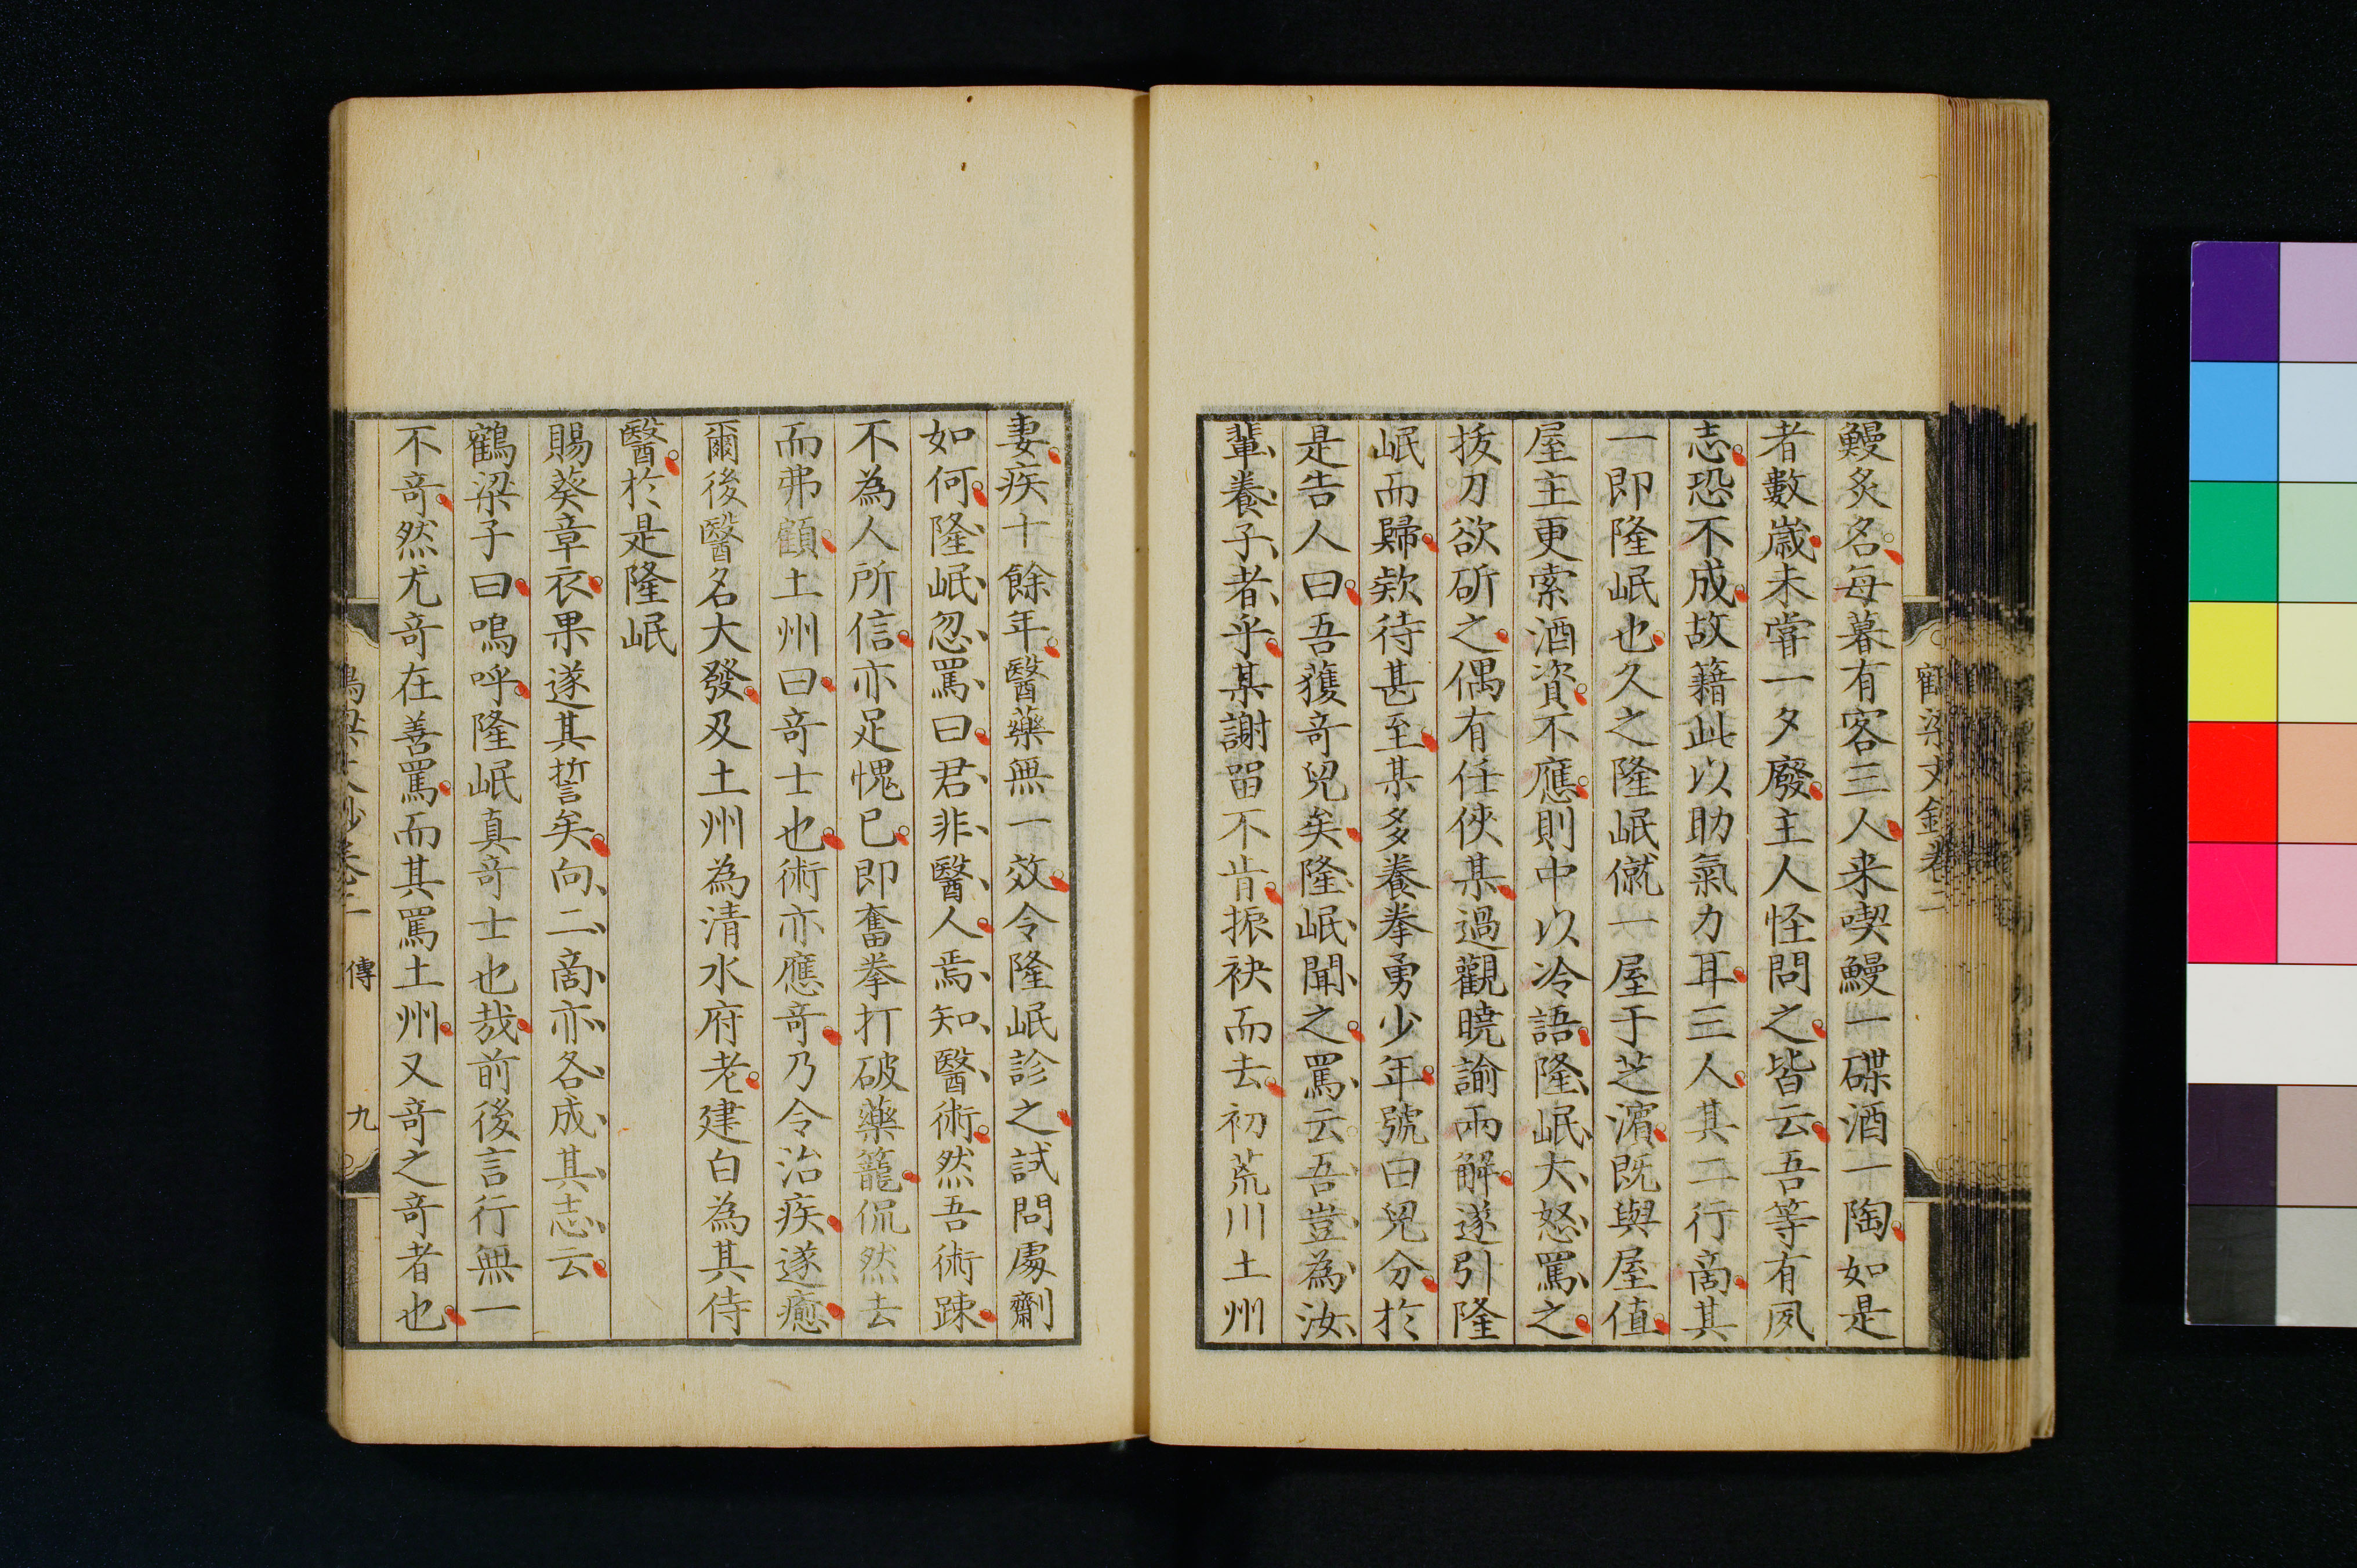 鰻炙名每暮有客三人来喫鰻一碟酒一陶如是
者數歲未嘗一夕廢主人怪問之皆云吾等有夙
志恐不成故籍此以助氣力耳三人其二行啇其
一即隆岷也久之隆岷僦一屋于芝濱既與屋值
屋主更索酒資不應則中以冷語隆岷大怒罵之
拔刀欲斫之偶有任俠某過觀曉諭兩解遂引隆
岷而歸欵待甚至某多養拳勇少年號曰兒分於
是告人曰吾獲奇兒矣隆岷聞之罵云吾豈為汝
輩養子者乎某謝畱不肯振袂而去初荒川土州
鶴梁文鈔卷二
妻疾十餘年醫藥無一效令隆岷診之試問處劑
如何隆岷忽罵曰君非醫人焉知醫術然吾術踈
不為人所信亦足愧已即奮拳打破藥籠侃然去
而弗顧土州曰奇士也術亦應奇乃令治疾遂癒
爾後醫名大發及土州為清水府老建白為其侍
醫於是隆岷
賜葵章衣果遂其誓矣向二啇亦各成其志云
鶴梁子曰嗚呼隆岷真奇士也哉前後言行無一
不奇然尤奇在善罵而其罵土州又奇之奇者也
鶴梁文鈔卷二 傳 九